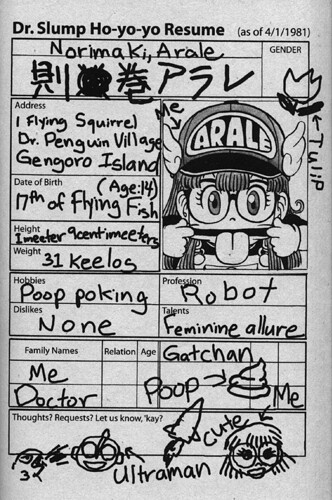 Dr. Slump Ho-yo-yo Resume (as of 4/1/1981)
Norimaki, Arale
GENDER
則巻アラレ
Tulip
Address
1 Flying Squirrel
Dr. Penguin Village
Gengoro Island
Me
ARALE
Date of Birth
(Age:14)
17th of Flying Fish
Height
1 meeter 9 centimeeters
Weight
31 Keelos
Hobbies
Poop poking
Profession
Robot
Dislikes
None
Talents
Feminine allure
Family Names
Relation
Age
Gatchan
Me
Doctor
Poop
Me
Thoughts? Requests? Let us know, 'kay?
Cute
Ultraman
3